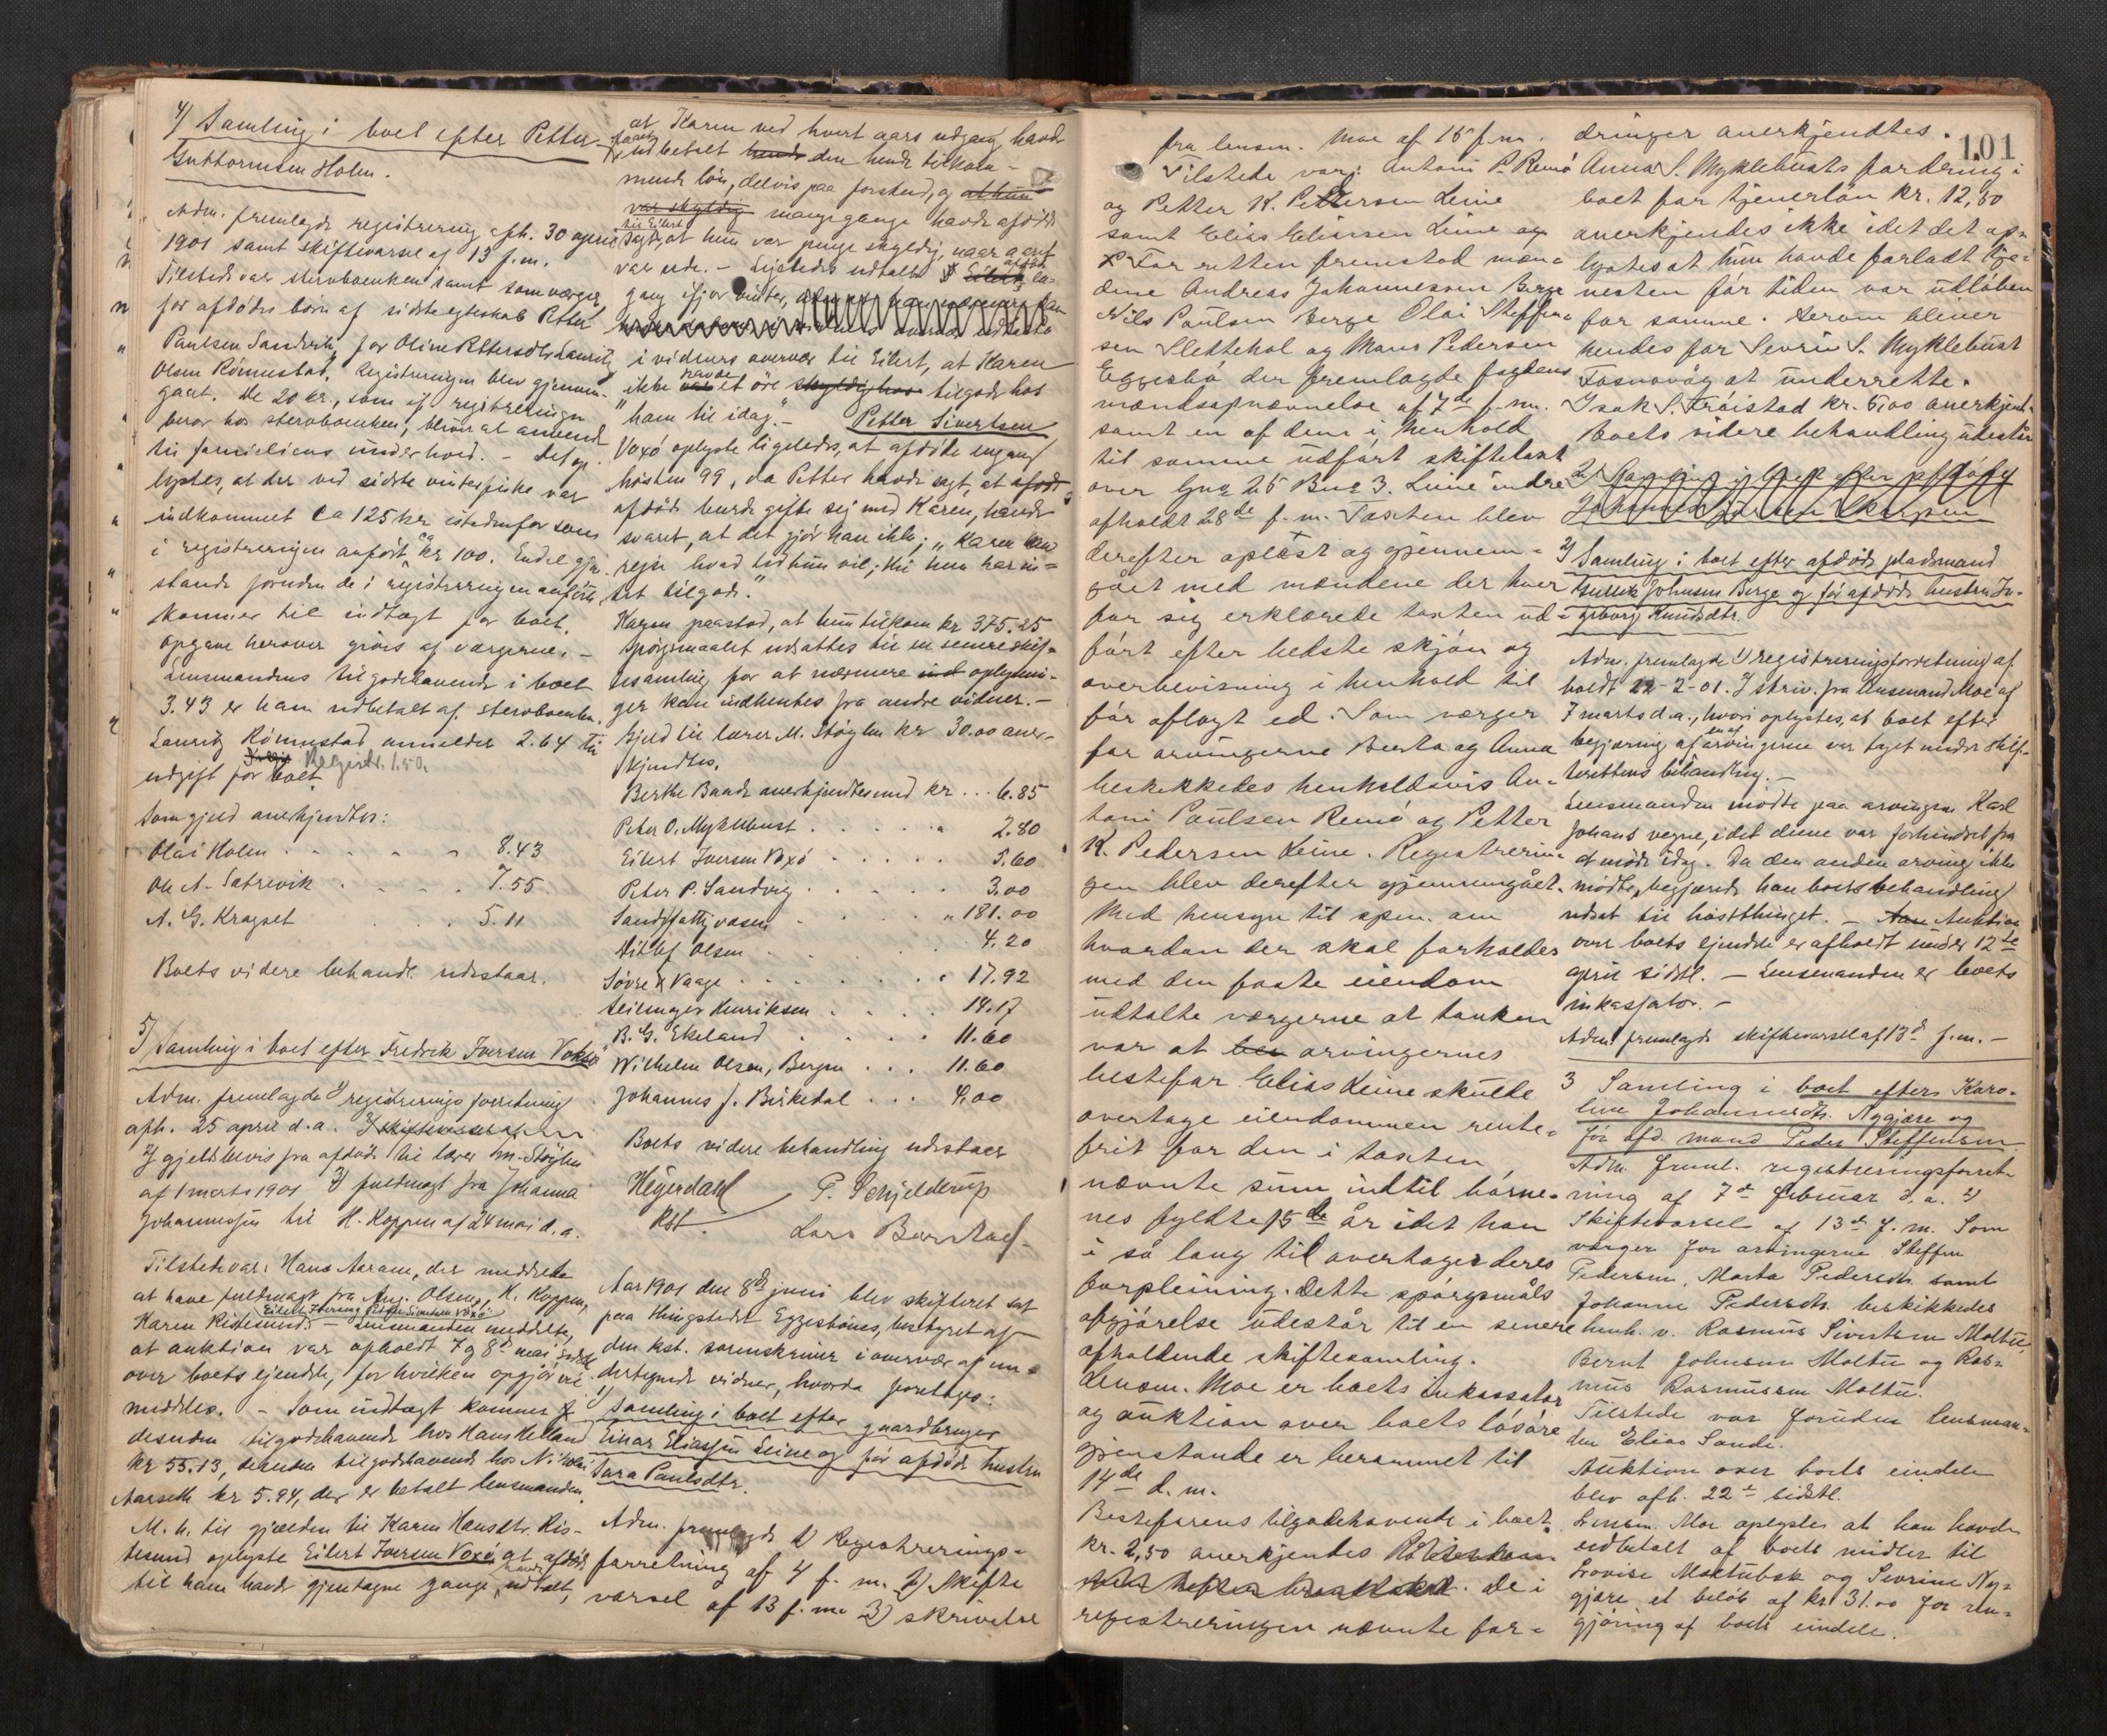 4) Samling i boet efter Petter
Guttormsen Holm.
Adm. fremlagde registrering afh. 30 april
1901 samt skiftevarsel af 13 f.m.
Tilstede var sterboenken samt som værger
for afdødes børn af sidste egteskab Petter
Paulsen Sandvik, for Oline Pettersdtr Lauritz
Olsen Rönnestad. Registreringen blev gjennem-
gaaet. De 20 kr., som if registreringen
beror hos sterboenken, bliver at anvende
til familiens underhold. - Det op-
lystes, at der ved sidste vinterfiske var
indkommet ca 125 kr istedenfor som
i registreringen anført ca kr 100. Endel gjen-
stande foruden de i registreringen anførte
kommer til indtægt for boet.
Opgave herover givis af værgerne. -
Lensmandens tilgodehavende i boet
3.43 er ham udbetalt af sterboenken.
Lauritz Rönnestad anmeldes 2.64 til
udgift for boet. Registr. 1.50.
Som gjeld anerkjendtes:
Olai Holm . . . . . 8.43
Ole A. Satrevik . . . . 7.55.
A. G. Kragset . . . 5.11
Boets videre behandl. udestaar.
5) Samling i boet efter Fredrik Iversen Voksø
Adm. fremlagde 1) registreringsforretning
afh. 25 april d.a. 2) skiftevarsel af
2) gjeldsbevis fra afdöde til lærer M. Støylen
af 1 marts 1901 3) fuldmagt fra Johanna
Johannesen til H. Koppen af 24 mai d.a.
Tilstede var: Hans Aaram, der meddelte
at have fuldmagt fra Aug. Olsen, K. Koppen,
Eilert Iversen, Petter Sivertsen Voxö
Karen Ristesund. - Lensmanden meddelte,
at auktion var afholdt 7 og 8de mai sidstl.
over boets ejendele, for hvilken opgjör vil
meddeles. - Som indtægt kommer
desuden tilgodehavende hos Hans Helland
kr 55.13, desuden tilgodehavende hos Nikolai
Aarseth kr 5.94, der er betalt lensmanden.
M. h. til gjælden til Karen Hansdtr. Ris-
tesund oplyste Eilert Iversen Voxö, at afdöde
til ham havde gjentagne gange udtalt,
at Karen ved hvert aars udgang havde
faaet udbetalt hende den hende tilkom-
mende lön, delvis paa forskud, og at hun
var skyldig mangegange havde afdöde
til Eilert sagt, at hun var penge skyldig, naar aaret
var ude. - Ligeledes udtalte afdöde en-
gang ifjor vinter,
i vidners overvær til Eilert, at Karen
"ikke havde et öre skyldig hos tilgode hos
"ham til idag." - Petter Sivertsen
Voxö oplyste ligeledes, at afdöde engang
hösten 99, da Petter havde sagt, at afdöde
afdöde burde gifte sig med Karen, havde
svaret, at det gjör han ikke; "Karen kan
rejse hvad tid hun vil; thi hun har in-
tet tilgode."
Karen paastod, at hun tilkom kr 375.25
Spörgsmaalet udsattes til en senere skif-
tesamling for at nærmere oplysnin-
ger kan indhentes fra andre vidner. -
Gjeld til lærer M. Støylen kr 30.00 aner-
kjendtes.
Berthe Baade anerkjendtes med kr . . . 6.85
Peter O. Myklebust . . . . . " 2.80
Eilert Iversen Voxö . . . . . 5.60
Peter P. Sandvig . . . . . 3.00
Sandsfattigvæsen . . . . " 181.00
. . . Olsen . . . . 4.20
Søvre Vaage . . . . . . " 17.92
Seilmager Henriksen . . . . 14.17
B. G. Ekeland . . . . . 11.60
Wilhelm Olsen, Bergen . . . 11.60
Johannes J. Birkedal . . . 4.00
Boets videre behandling udestaar
Heyerdahl P. Schjelderup
kst. Lars Barstad.
Aar 1901 den 8de juni blev skifteret sat
paa thingstedet Eggesbönes, bestyret af
den kst. sorenskriver i overvær af un-
dertegnede vidner, hvorda foretoges:
1) Samling i boet efter gaardbruger
Einar Eliassen Leine og før afdøde hustru
Sara Paulsdtr.
Adm. fremlagde 1) Registrerings-
forretning af 4 f. m. 2) Skifte
varsel af 13 f. m. 3) skrivelse
101
fra lensm. Moe af 15 f.m.
Tilstede var: Antoni P. Remö
og Petter K. Pettersen Leine
samt Elias Eliassen Leine og
For retten fremstod mæn-
dene Andreas Johannessen Berge
Nils Paulsen Berge Olai Steffen-
sen Slettehol og Mons Pedersen
Eggesbö der fremlagde fogdens
mændsopnævnelse af 7de f.m.
samt en af dem i henhold
til samme udfört skiftetaxt
over Gno 25 Bno 3. Leine indre
afholdt 28de f.m. Taxten blev
derefter oplæst og gjennem-
gået med mændene der hver
for sig erklærede taxten ud-
ført efter bedste skjön og
overbevisning i henhold til
før aflagt ed. Som værger
for arvingerne Berta og Anna
beskikkedes henholdsvis An-
toni Paulsen Remö og Petter
K. Pedersen Leine. Registrerin-
gen blev derefter gjennemgået.
Med hensyn til spm. om
hvordan der skal forholdes
med den faste eiendom
udtalte værgerne at tanken
var at arvingernes
bestefar Elias Leine skulde
overtage eiendommen rente-
frit for den i taxten
nævnte sum indtil börne-
nes fyldte 15de år idet han
i så lang til overtager deres
forpleining. Dette spörgsmåls
afgjörelse udestår til en senere
afholdende skiftesamling.
Lensm. Moe er boets inkassator
og auktion over boets lösöre
gjenstande er berammet til
14de d.m.
Bestefarens tilgodehavende i boet
kr. 2,50 anerkjendes
De i
registreringen nævnte for-
dringer anerkjendtes.
Anna S. Myklebusts fordring i
boet for tjenerlön kr. 12,50
anerkjendes ikke idet det op-
lystes at hun havde forladt tje-
nesten för tiden var udlöben
for samme. Herom bliver
hendes far Sevrin S. Myklebust
Fosnavåg at underrette.
Isak S. Fröistad kr. 5,00 anerkjent.
Boets videre behandling udestår
2) Samling i boet efter afdöde
Johannes
2) Samling i boet efter afdöde pladsmand
Gullik Johnsen Berge og før afdöde hustru In-
geborg Knudsdtr.
Adm. fremlagde 1) registreringsforretning af
holdt 22-2-01. 2) skriv. fra lensmand Moe af
7 marts d.a., hvori oplystes, at boet efter
begjæring af en af arvingerne var taget under skif-
terettens behandling. -
Lensmanden mödte paa arvingen Karl
Johans vegne, idet denne var forhindret fra
at möde idag. Da den anden arving ikke
mödte, begjærede han boets behandling
udsat til höstthinget. - Auktion
over boets ejendele er afholdt under 12te
april sidstl. - Lensmanden er boets
inkassator. -
Adm. fremlagde skiftevarsel af 13d f.m. -
3 Samling i boet efter Karo-
line Johannesdtr. Nygjære og
før afd. mand Peder Steffensen
Adm. freml. registreringsforret-
ning af 7de februar d.a. 2)
Skiftevarsel af 13de f.m. Som
værger for arvingerne Steffen
Pedersen, Marta Pedersdtr. samt
Johanne Pedersdtr. beskikkedes
henh. v. Rasmus Sivertsen Moltu,
Bernt Johnsen Moltu og Ras-
mus Rasmussen Moltu.
Tilstede var foruden lensman-
den Elias Sande.
Auktion over boets eindele
blev afh. 22de sidstl.
Lensm. Moe oplyste at han havde
udbetalt af boets midler til
Lovise Moltubak og Sevrine Ny-
gjære et belöb af kr. 31.00 for ren-
gjöring af boets eindele.